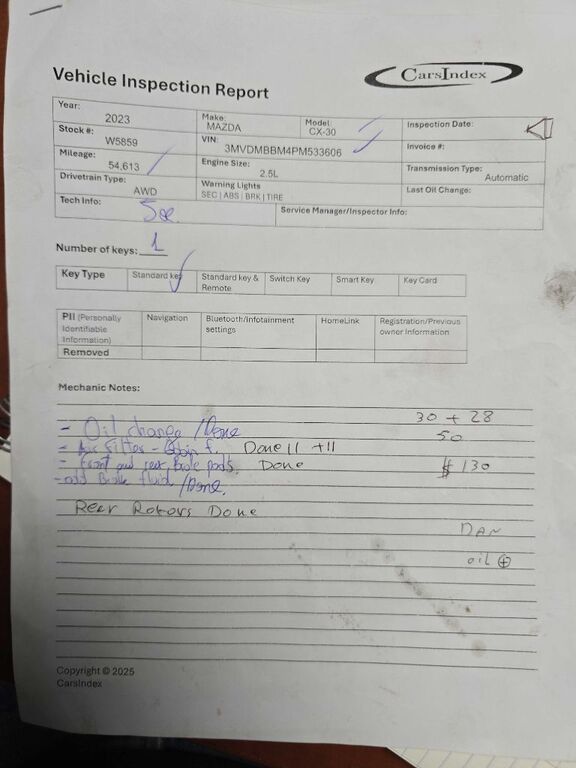 CARSINDEX
Vehicle Inspection Report
Year: 2023 Make: MAZDA Model: CX-30 Inspection Date:
Stock #: W5859 VIN: 3MVDMBBM4PM533606 Invoice #:
Mileage: 54,613 Engine Size: 2.5L Transmission Type: Automatic
Drivetrain Type: AWD Warning Lights SEC | ABS | BRK | TIRE Last Oil Change:
Tech Info: Service Manager/Inspector Info:
Number of keys: 1
Key Type Standard key Standard key & Remote Switch Key Smart Key Key Card
PII (Personally Identifiable Information) Navigation Bluetooth/Infotainment settings HomeLink Registration/Previous owner Information
Removed
Mechanic Notes:
30 + 28
- Oil change /Done 50
- Air Filter - Cabin f. Done 11 +11
- front and rear Brake pads. Done $130
- add Brake fluid /Done.
Rear Rotors Done
oil +
Copyright © 2025
CarsIndex